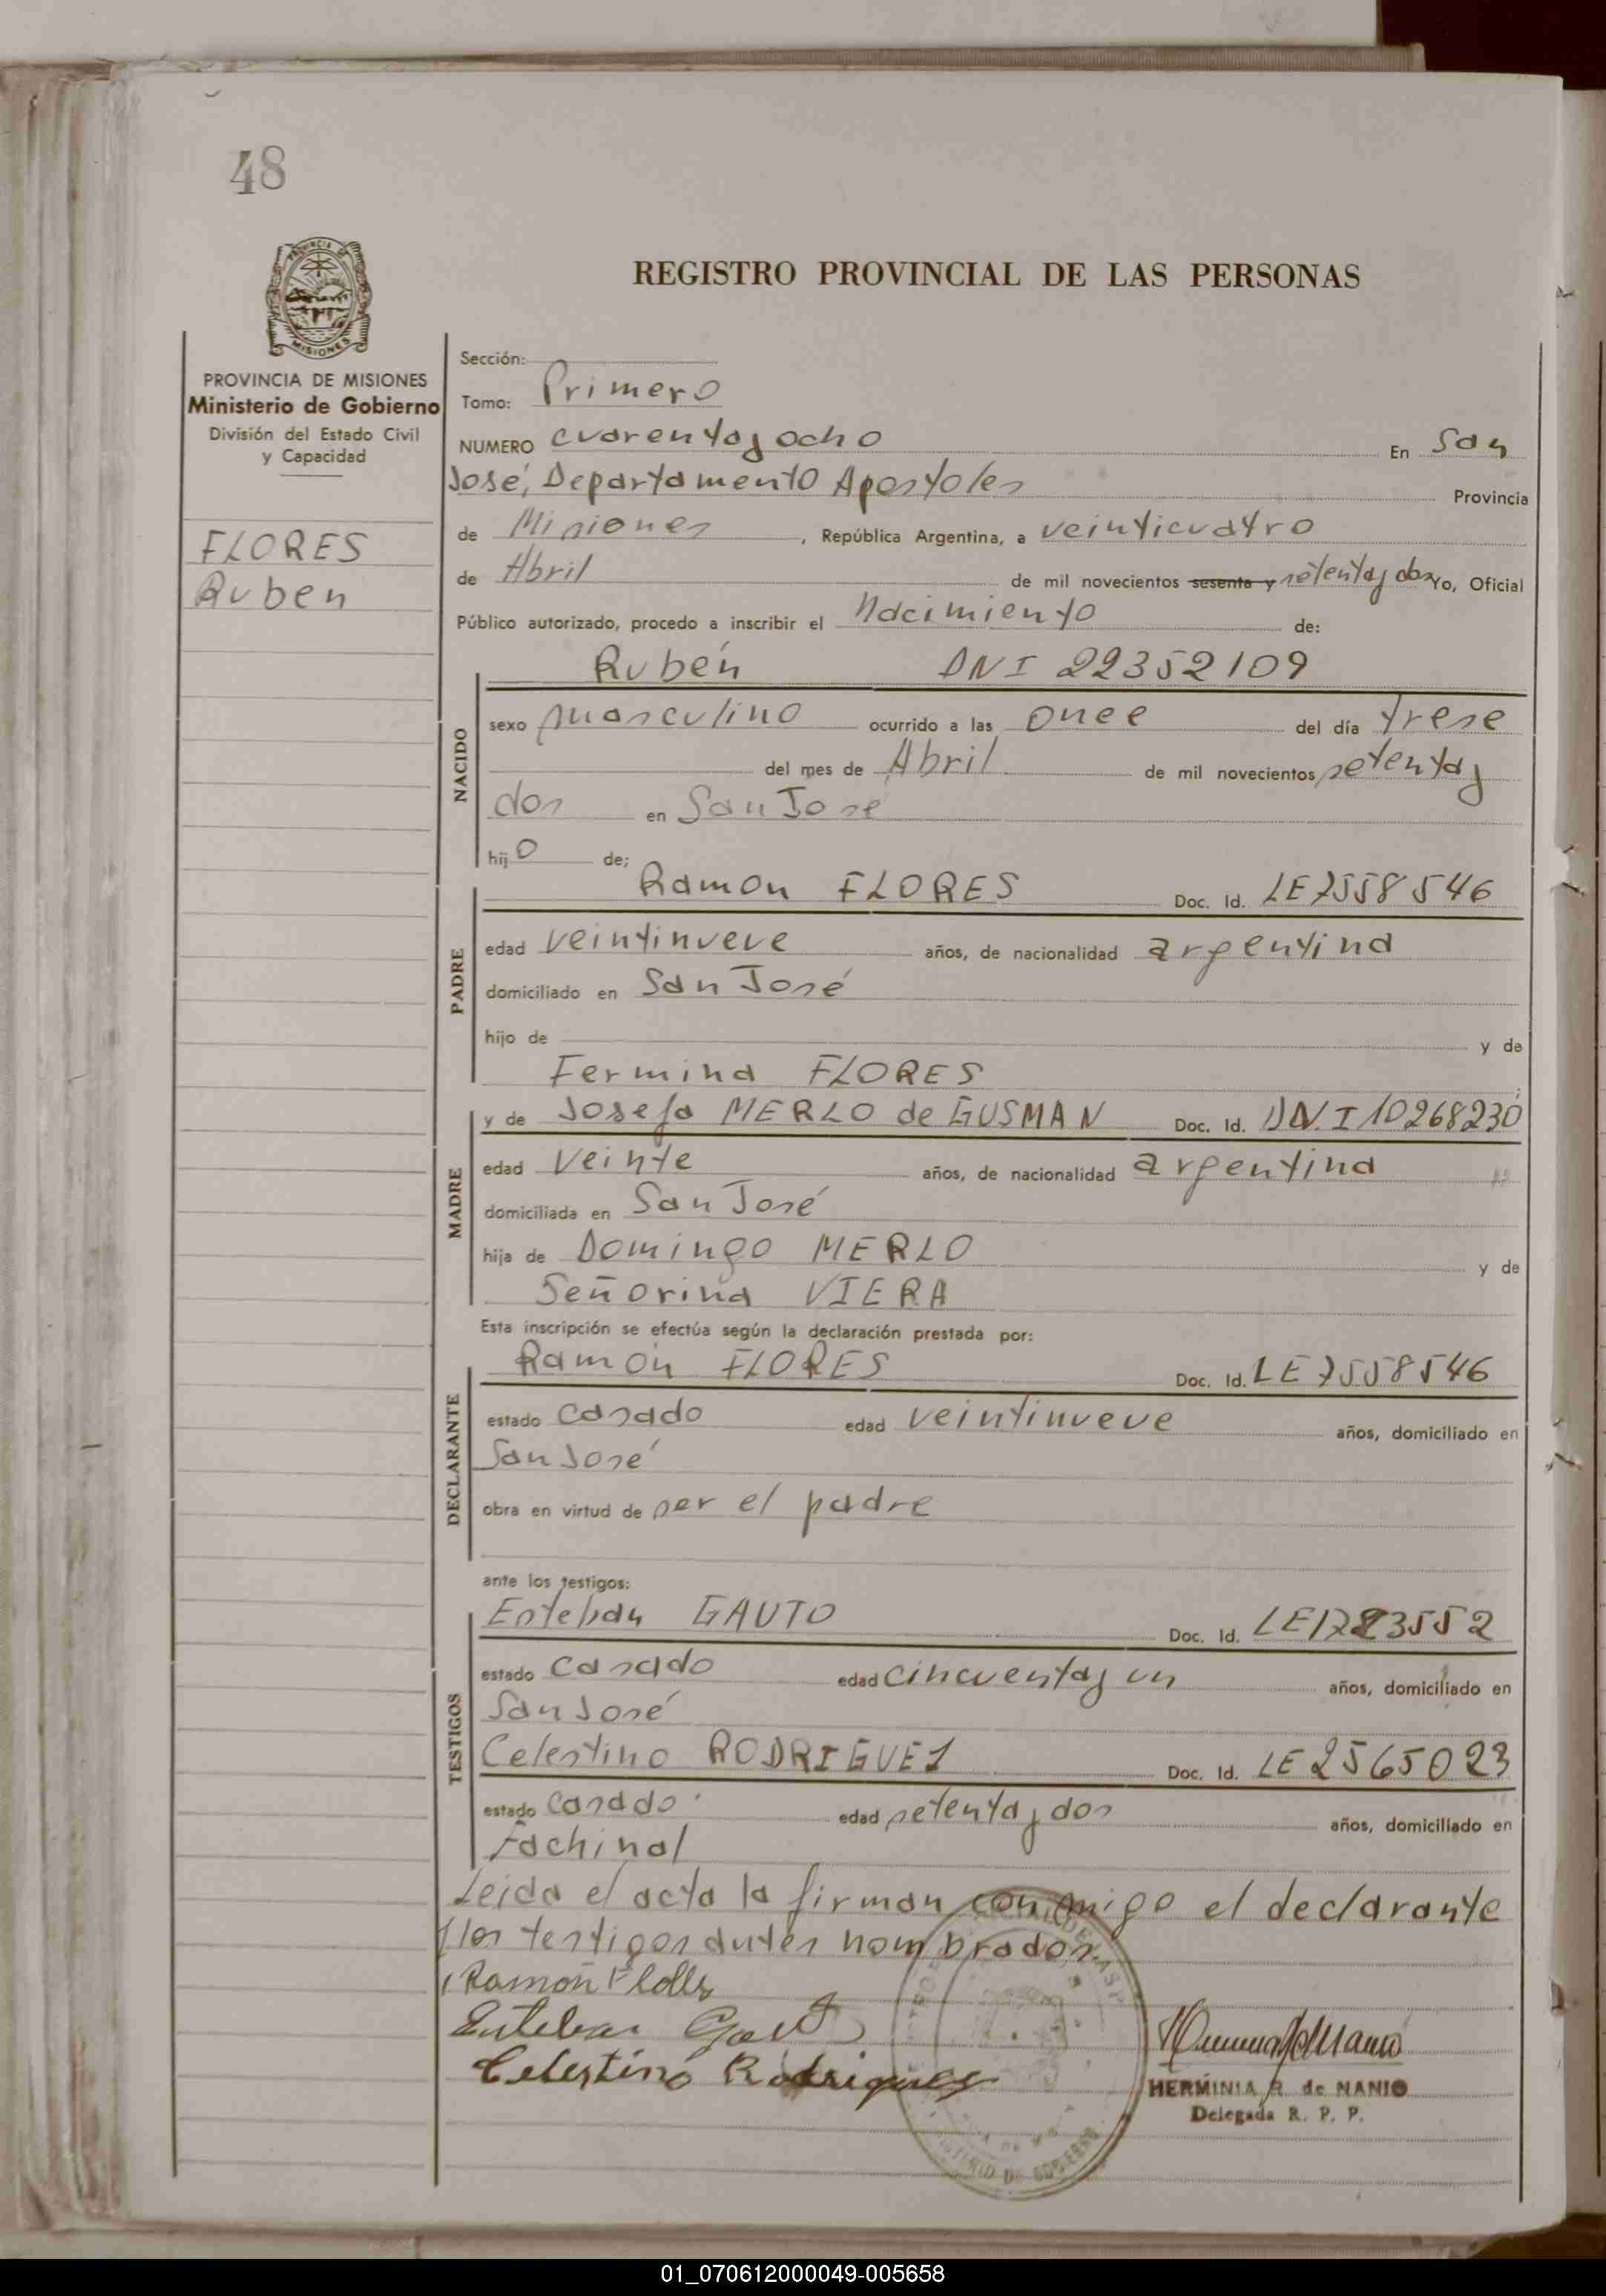 48
REGISTRO PROVINCIAL DE LAS PERSONAS
PROVINCIA DE MISIONES
Ministerio de Gobierno
División del Estado Civil
y Capacidad
FLORES
Ruben
Sección:
Tomo: Primero
NUMERO cuarenta y ocho En San
José, Departamento Apostoles Provincia
de Misiones, República Argentina, a veinticuatro
de Abril de mil novecientos sesenta y setenta y dos Yo, Oficial
Público autorizado, procedo a inscribir el Nacimiento de:
Rubén DNI 22352109
NACIDO
sexo masculino ocurrido a las once del día trese
del mes de Abril de mil novecientos setenta y
dos en San José
hijo de;
PADRE
Ramon FLORES Doc. Id. LE 7558546
edad veintinueve años, de nacionalidad argentina
domiciliado en San José
hijo de y de
Fermina FLORES
MADRE
y de Josefa MERLO de GUSMAN Doc. Id. DN.I 10268230
edad veinte años, de nacionalidad argentina
domiciliada en San José
hija de Domingo MERLO y de
Señorina VIERA
Esta inscripción se efectúa según la declaración prestada por:
DECLARANTE
Ramón FLORES Doc. Id. LE 7558546
estado casado edad veintinueve años, domiciliado en
San José
obra en virtud de ser el padre
ante los testigos:
TESTIGOS
Esteban GAUTO Doc. Id.
estado casado edad cincuenta y un años, domiciliado en
San José
Celestino RODRIGUEZ Doc. Id. LE 2565023
estado casado edad setenta y dos años, domiciliado en
Fachinal
Leida el acta la firman conmigo el declarante
y los testigos antes nombrados.
Ramón Flores
Esteban Gauto
Celestino Rodriguez
HERMINIA R. de NANIO
Delegada R. P. P.
01_070612000049-005658